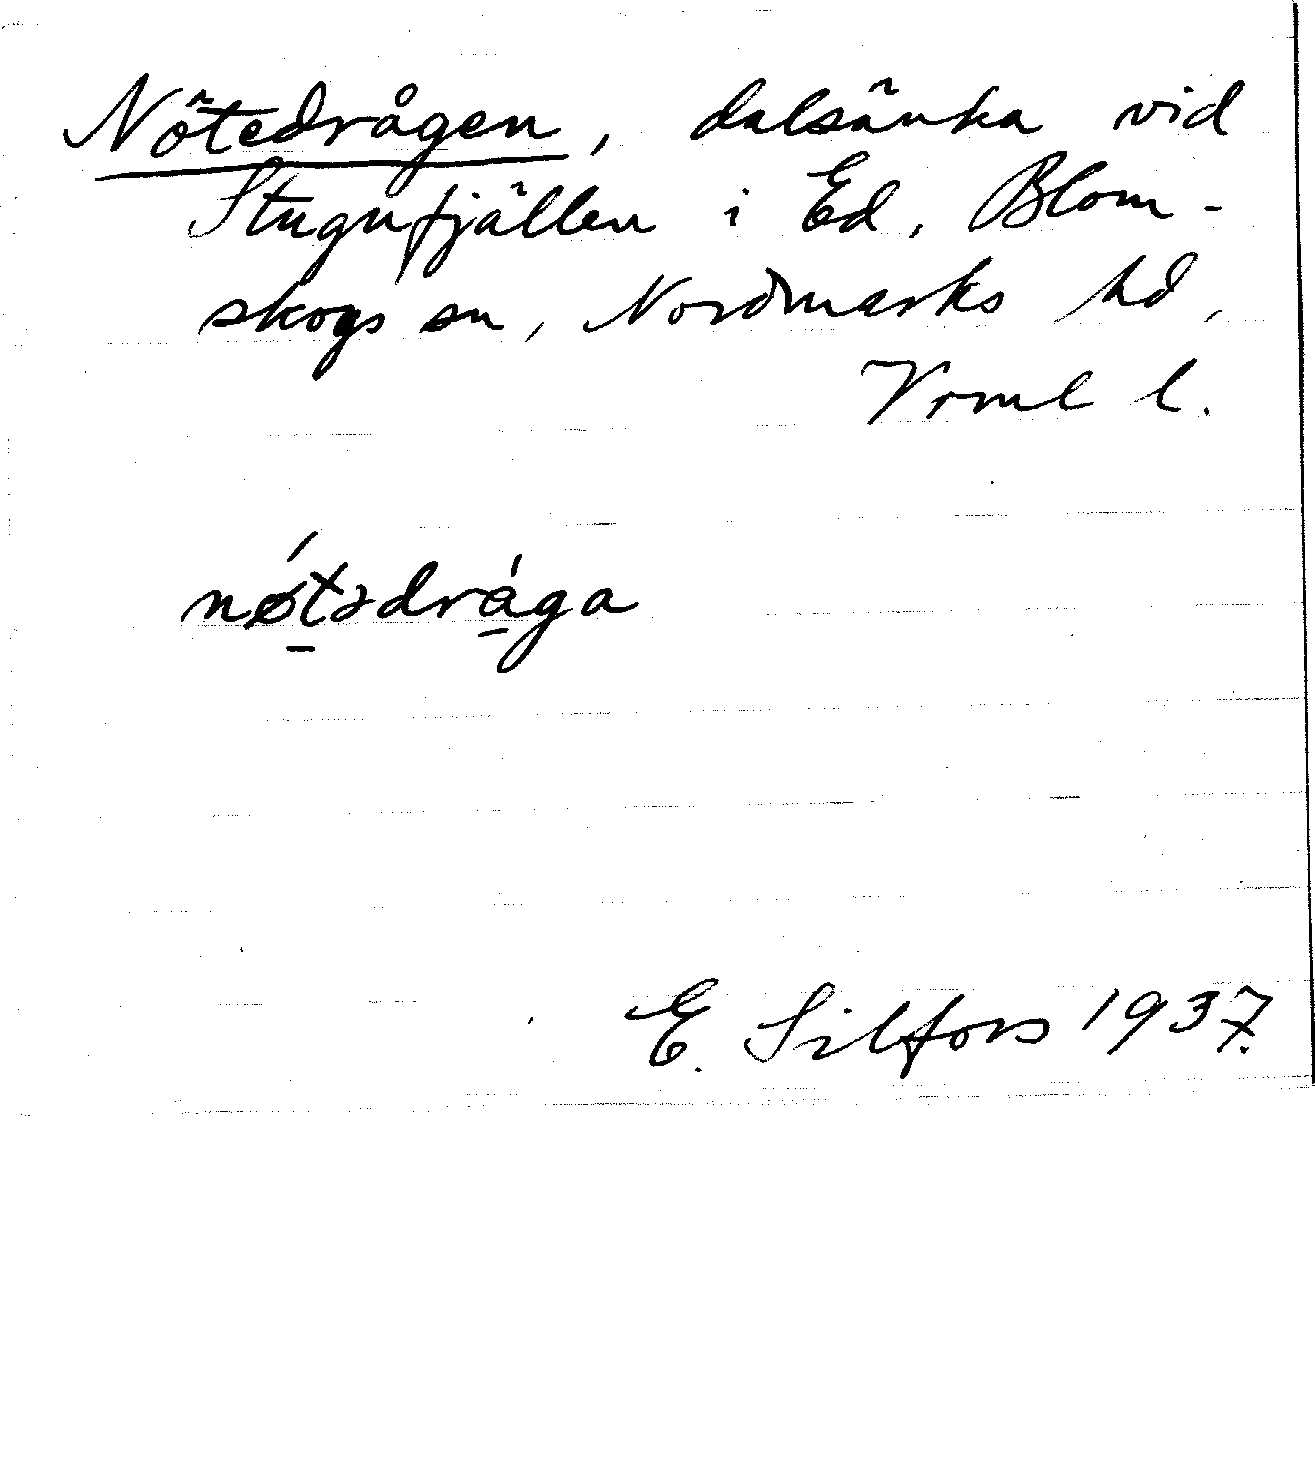 Nötedrågen, dalsänka vid
Stugufjällen i Ed, Blom-
skogs sn, Nordmarks hd,
Vrml l.
nǿt̠ədrága
E. Silfors 1937.